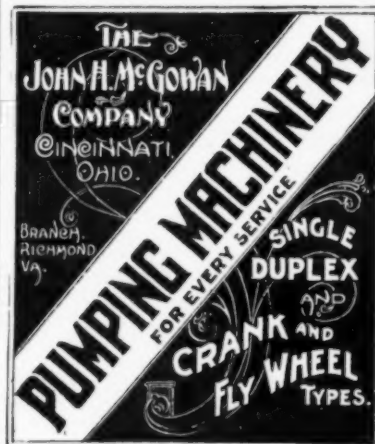 THE
JOHN H. McGOWAN
COMPANY
CINCINNATI,
OHIO.
BRANCH,
RICHMOND
VA.
PUMPING MACHINERY
FOR EVERY SERVICE
SINGLE
DUPLEX
AND
CRANK AND
FLY WHEEL
TYPES.